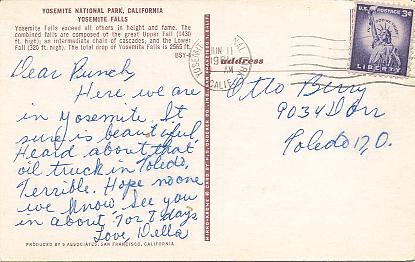 YOSEMITE NATIONAL PARK, CALIFORNIA
YOSEMITE FALLS
Yosemite Falls exceed all others in height and fame. The
combined falls are composed of the great Upper Fall (1430
ft. high); an intermediate chain of cascades; and the Lower
Fall (320 ft. high). The total drop of Yosemite Falls is 2565 ft.
BSY-
Dear Bunch,
Here we are
in Yosemite. It
sure is beautiful
Heard about that
oil truck in Toledo,
Terrible. Hope no one
we know. See you
in about 7 or 8 days
Love, Della
PRODUCED BY S ASSOCIATES, SAN FRANCISCO, CALIFORNIA
address
JUN 11
AM
CALIF.
U.S. POSTAGE 3¢
LIBERTY
Otto Berry
9034 Dorr
Toledo, O.